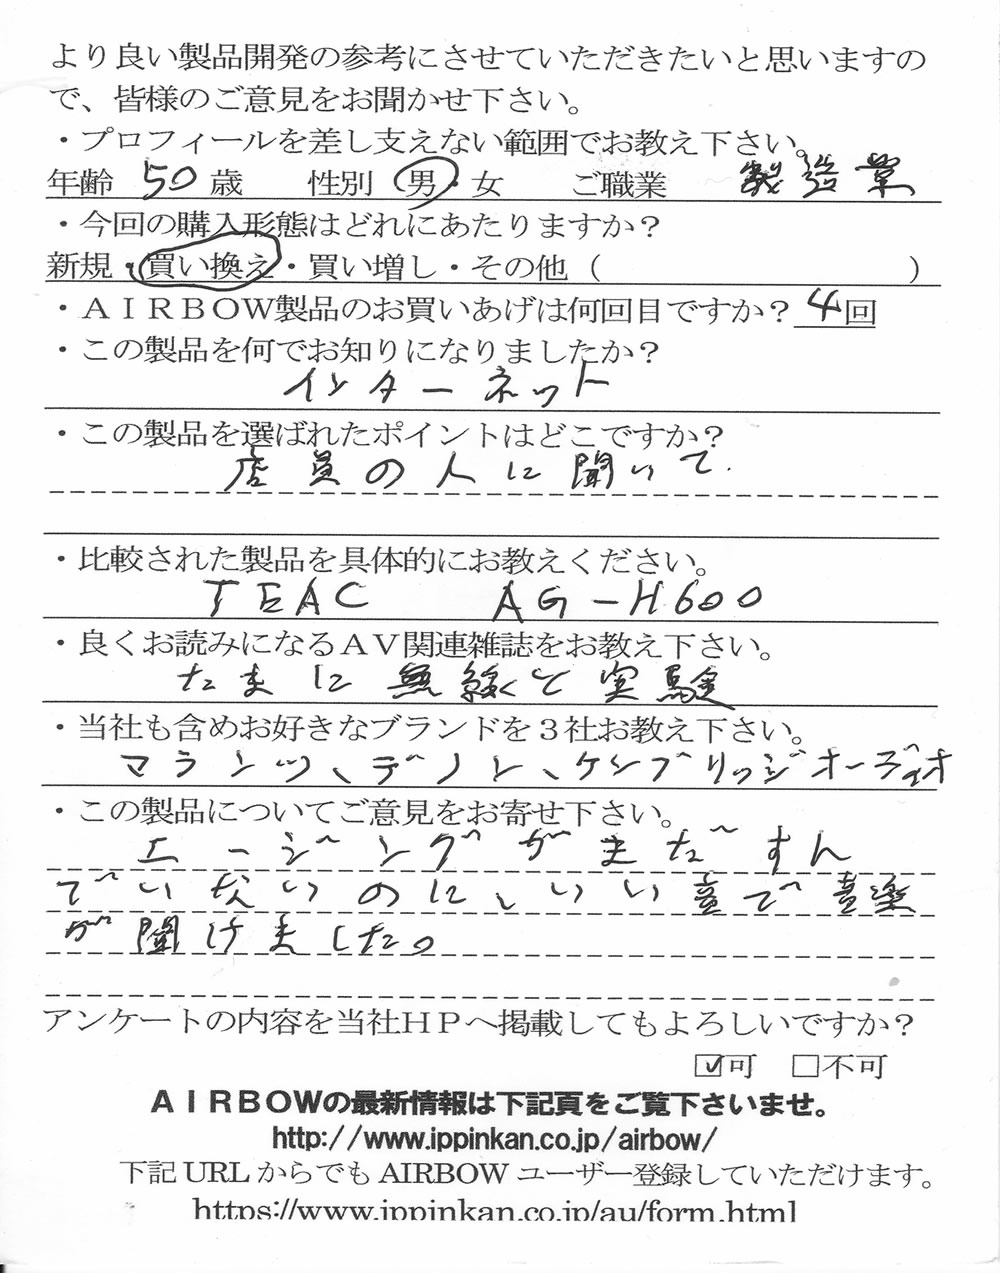 より良い製品開発の参考にさせていただきたいと思いますの
で、皆様のご意見をお聞かせ下さい。
・プロフィールを差し支えない範囲でお教え下さい。
年齢 50 歳 性別 男・女 ご職業
・今回の購入形態はどれにあたりますか？
新規・買い換え・買い増し・その他（ ）
・ＡＩＲＢＯＷ製品のお買いあげは何回目ですか？ 4回
・この製品を何でお知りになりましたか？
インターネット
・この製品を選ばれたポイントはどこですか？
店員の人に聞いて.
・比較された製品を具体的にお教えください。
TEAC AG-H600
・良くお読みになるＡＶ関連雑誌をお教え下さい。
たまに無線と実験
・当社も含めお好きなブランドを３社お教え下さい。
マランツ、デノン、ケンブリッジオーディオ
・この製品についてご意見をお寄せ下さい。
エージングがまだすん
でいないのに、いい音で音楽
が聞けました。
アンケートの内容を当社ＨＰへ掲載してもよろしいですか？
☑可 □不可
ＡＩＲＢＯＷの最新情報は下記頁をご覧下さいませ。
http://www.ippinkan.co.jp/airbow/
下記 URL からでも AIRBOW ユーザー登録していただけます。
https://www.ippinkan.co.jp/au/form.html